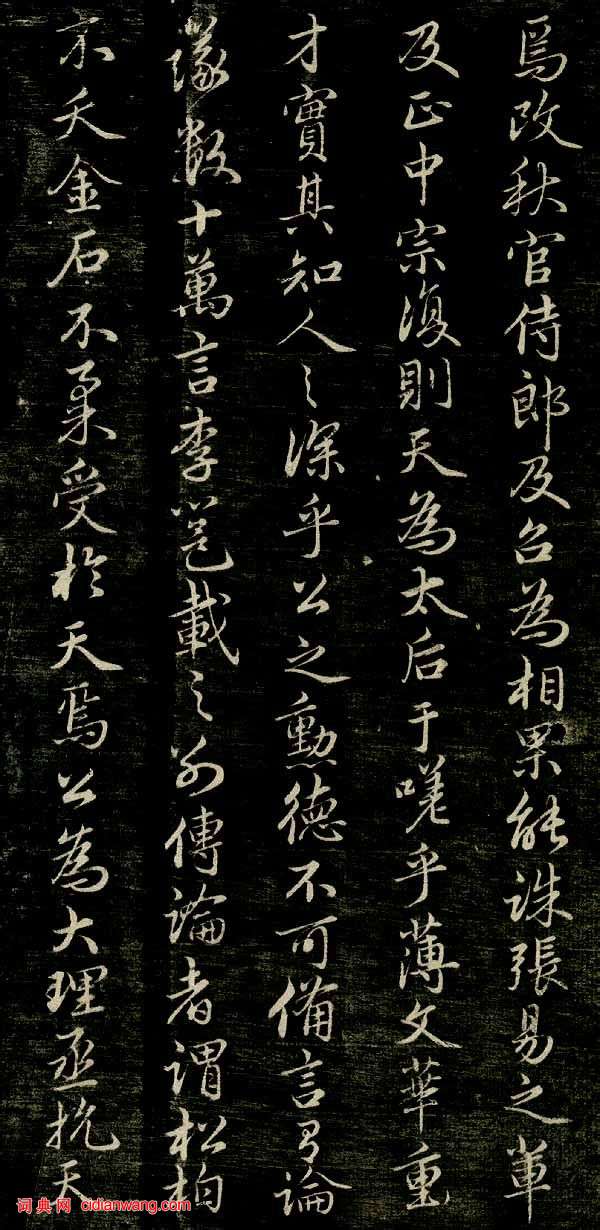 焉改秋官侍郎及召為相果能誅張易之軰
及正中宗復則天為太后于嗟乎薄文華重
才實其知人之深乎公之勳德不可備言有論
議數十萬言李邕載之別傳論者謂松柏
不夭金石不柔受於天焉公為大理丞抗天
词典网 cidianwang.com